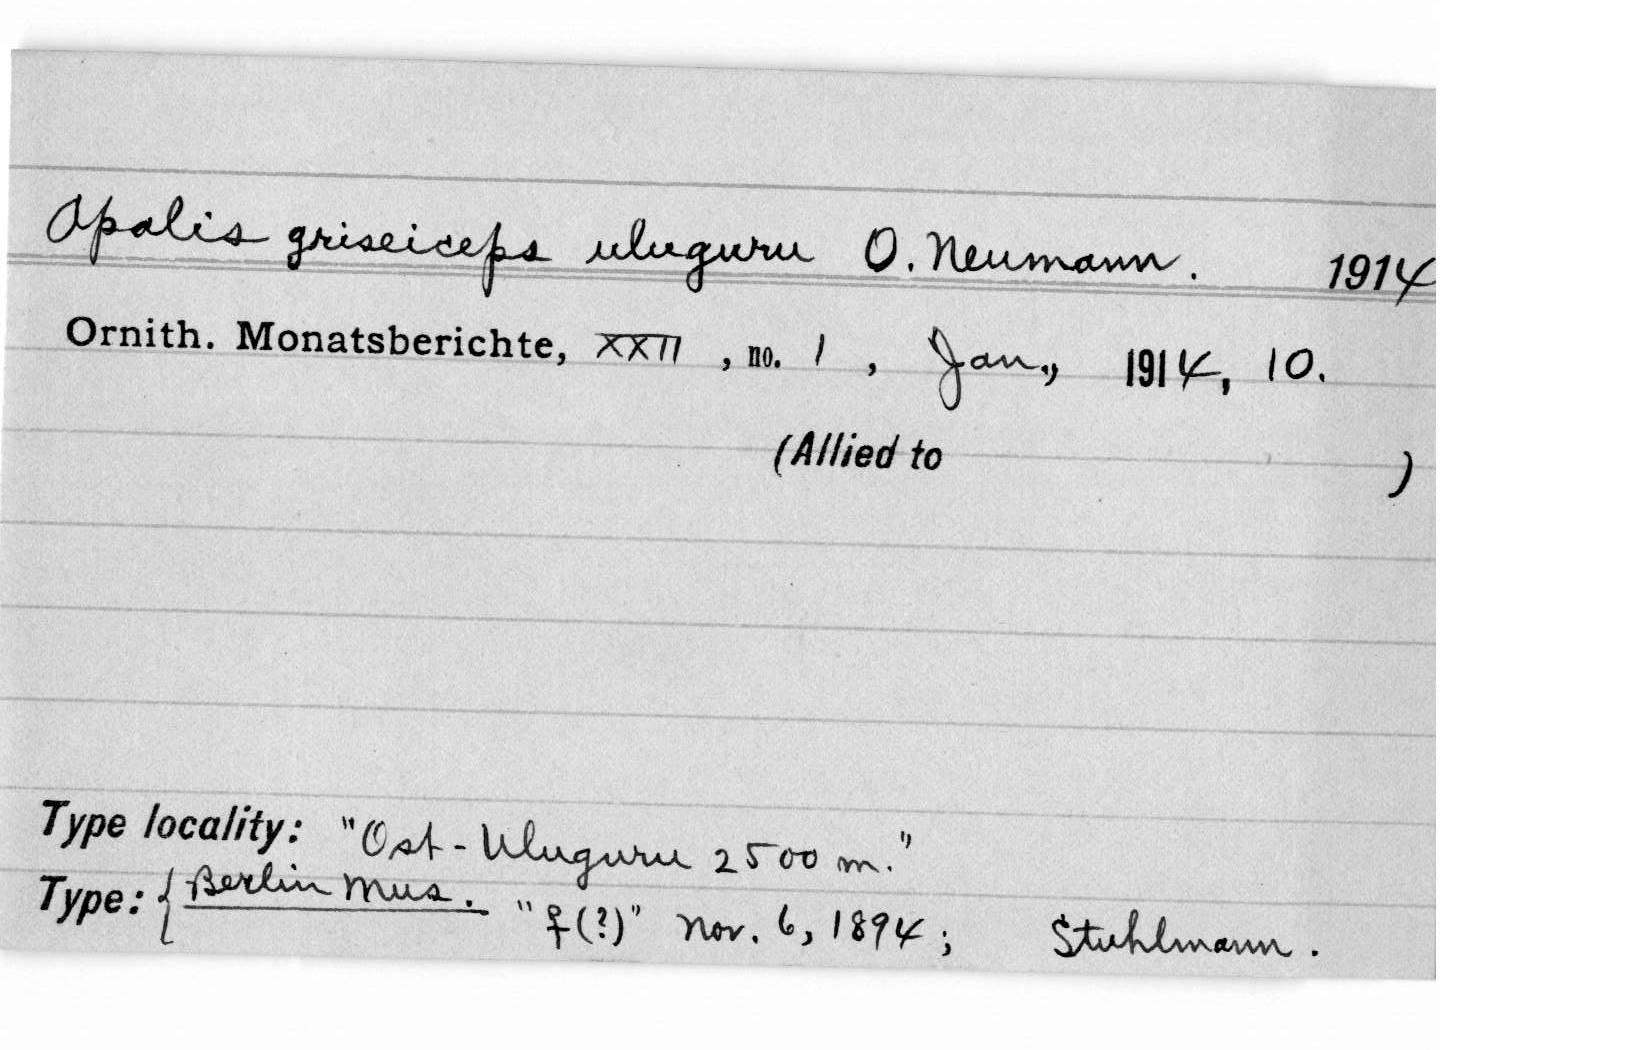 Apalis griseiceps uluguru O. Neumann. 1914
Ornith. Monatsberichte, XXII, no. 1, Jan., 1914, 10.
(Allied to )
Type locality: "Ost-Uluguru 2500 m."
Type: { Berlin Mus. "♀(?)" Nov. 6, 1894; Stuhlmann.